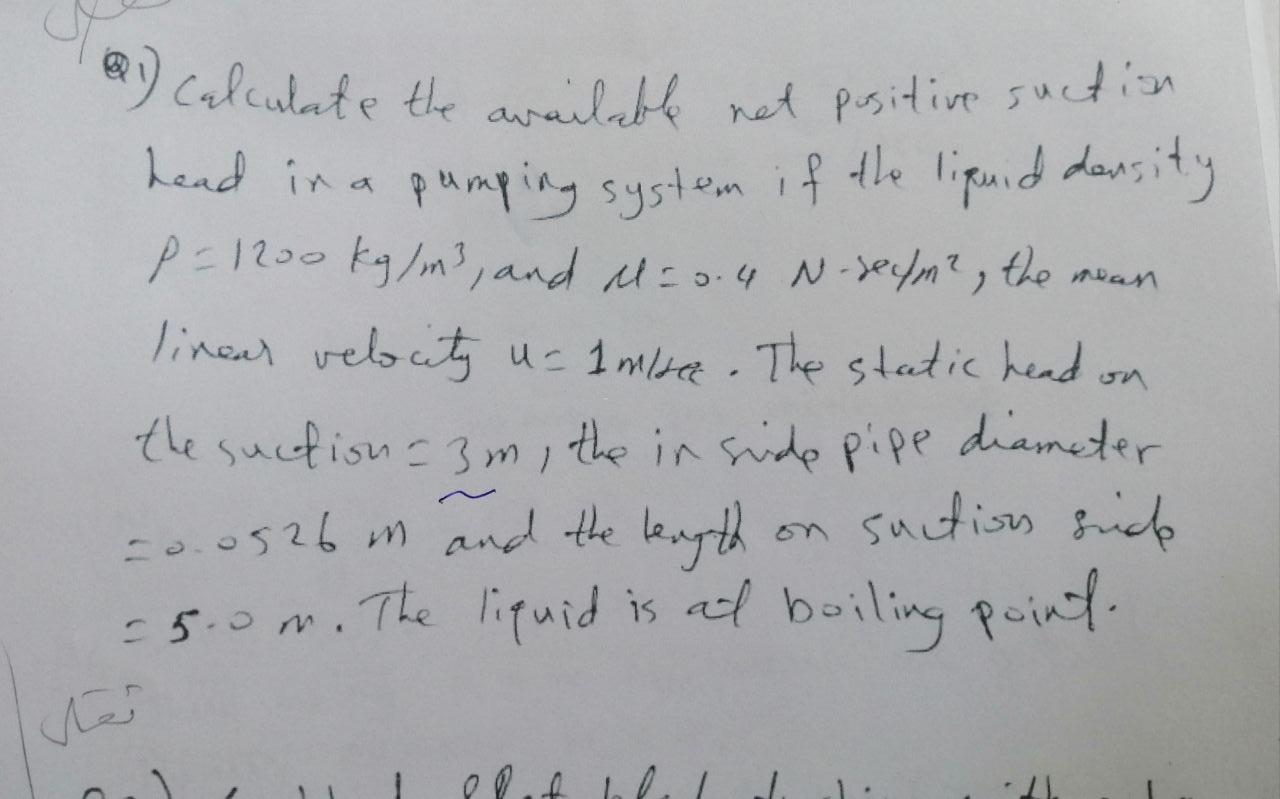 Q1) Calculate the available net positive suction
head in a pumping system if the liquid density
ρ = 1200 kg/m³, and μ = 0.4 N-sec/m², the mean
linear velocity u = 1 m/sec. The static head on
the suction = 3m, the inside pipe diameter
= 0.0526 m and the length on suction side
= 5.0 m. The liquid is at boiling point.